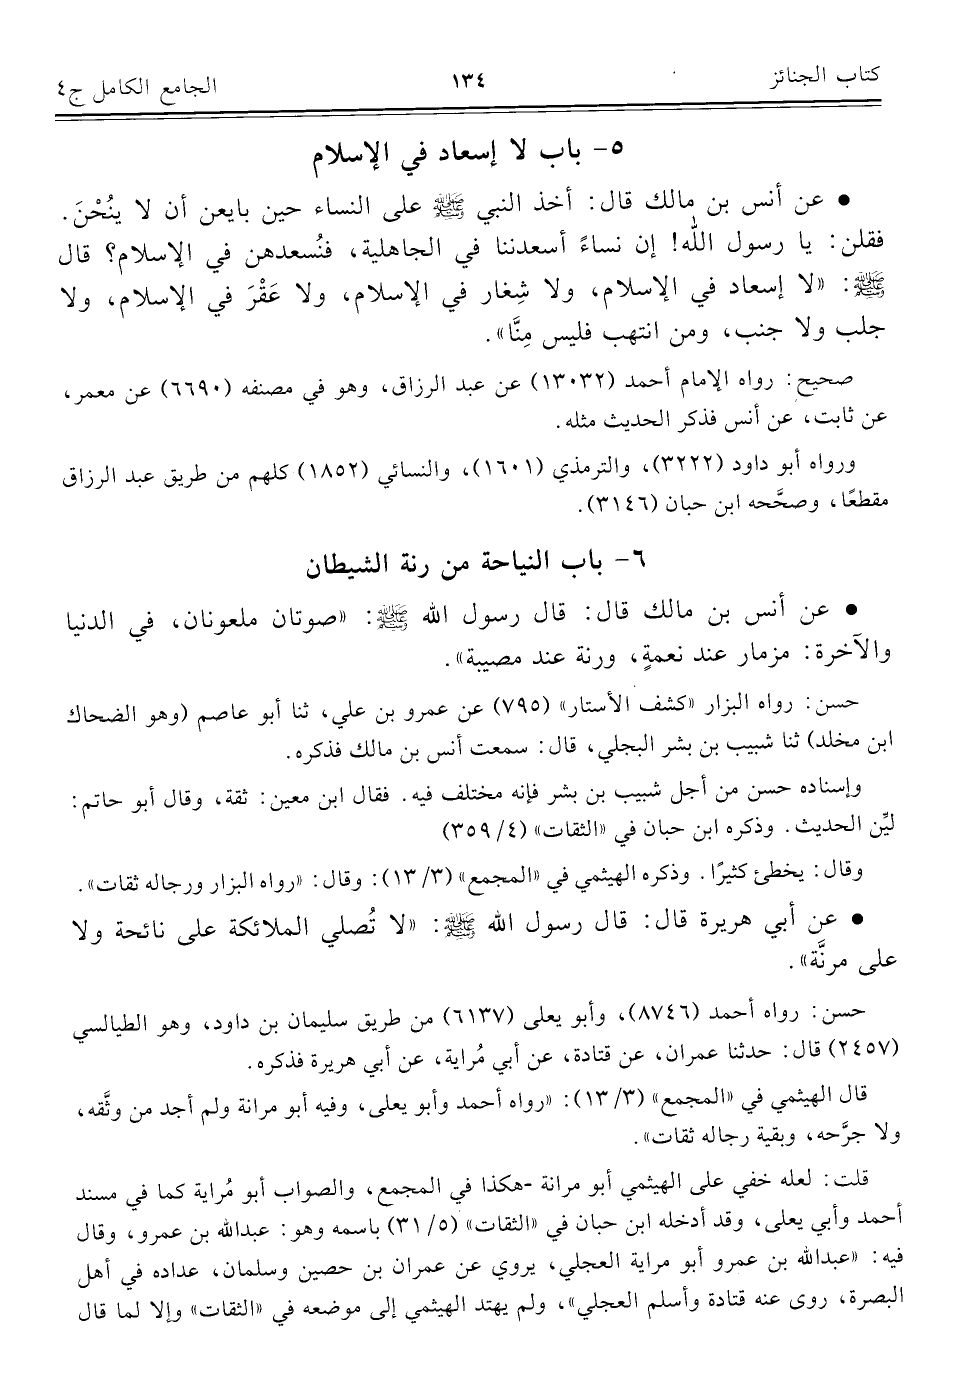 كتاب الجنائز ١٣٤ الجامع الكامل ج٤
٥- باب لا إسعاد في الإسلام
● عن أنس بن مالك قال: أخذ النبي ﷺ على النساء حين بايعن أن لا ينُحْنَ.
فقلن: يا رسول الله! إن نساءً أسعدننا في الجاهلية، فنُسعدهن في الإسلام؟ قال
ﷺ: «لا إسعاد في الإسلام، ولا شِغار في الإسلام، ولا عَقْرَ في الإسلام، ولا
جلب ولا جنب، ومن انتهب فليس مِنَّا».
صحيح: رواه الإمام أحمد (١٣٠٣٢) عن عبد الرزاق، وهو في مصنفه (٦٦٩٠) عن معمر،
عن ثابت، عن أنس فذكر الحديث مثله.
ورواه أبو داود (٣٢٢٢)، والترمذي (١٦٠١)، والنسائي (١٨٥٢) كلهم من طريق عبد الرزاق
مقطعًا، وصحَّحه ابن حبان (٣١٤٦).
٦- باب النياحة من رنة الشيطان
● عن أنس بن مالك قال: قال رسول الله ﷺ: «صوتان ملعونان، في الدنيا
والآخرة: مزمار عند نعمةٍ، ورنة عند مصيبة».
حسن: رواه البزار «كشف الأستار» (٧٩٥) عن عمرو بن علي، ثنا أبو عاصم (وهو الضحاك
ابن مخلد) ثنا شبيب بن بشر البجلي، قال: سمعت أنس بن مالك فذكره.
وإسناده حسن من أجل شبيب بن بشر فإنه مختلف فيه. فقال ابن معين: ثقة، وقال أبو حاتم:
ليِّن الحديث. وذكره ابن حبان في «الثقات» (٣٥٩/٤)
وقال: يخطئ كثيرًا. وذكره الهيثمي في «المجمع» (١٣/٣): وقال: «رواه البزار ورجاله ثقات».
● عن أبي هريرة قال: قال رسول الله ﷺ: «لا تُصلي الملائكة على نائحة ولا
على مرنَّة».
حسن: رواه أحمد (٨٧٤٦)، وأبو يعلى (٦١٣٧) من طريق سليمان بن داود، وهو الطيالسي
(٢٤٥٧) قال: حدثنا عمران، عن قتادة، عن أبي مُراية، عن أبي هريرة فذكره.
قال الهيثمي في «المجمع» (١٣/٣): «رواه أحمد وأبو يعلى، وفيه أبو مرانة ولم أجد من وثَّقه،
ولا جرَّحه، وبقية رجاله ثقات».
قلت: لعله خفي على الهيثمي أبو مرانة -هكذا في المجمع، والصواب أبو مُراية كما في مسند
أحمد وأبي يعلى، وقد أدخله ابن حبان في «الثقات» (٣١/٥) باسمه وهو: عبدالله بن عمرو، وقال
فيه: «عبدالله بن عمرو أبو مراية العجلي، يروي عن عمران بن حصين وسلمان، عداده في أهل
البصرة، روى عنه قتادة وأسلم العجلي»، ولم يهتد الهيثمي إلى موضعه في «الثقات» وإلا لما قال